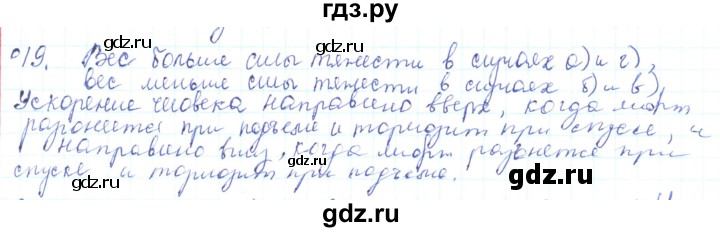 гдз.ру
019. Вес больше силы тяжести в случаях а) и г),
вес меньше силы тяжести в случаях б) и в)
Ускорение человека направлено вверх, когда лифт
разгоняется при подъеме и тормозит при спуске, и
направлено вниз, когда лифт разгоняется при
спуске и тормозит при подъеме.
gdz.ru gdz.ru gdz.ru
gdz.ru gdz.ru gdz.ru
gdz.ru
gdz.ru gdz.ru gdz.ru